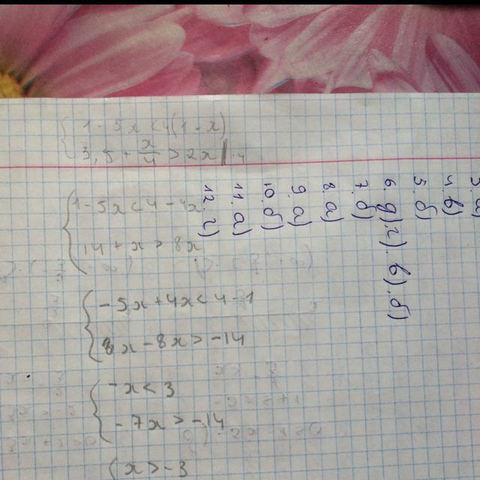 1 - 5x < 4(1 - x)
3,5 + x/4 > 2x | 4
1 - 5x < 4 - 4x
14 + x > 8x
-5x + 4x < 4 - 1
8x - 8x > -14
-x < 3
-7x > -14
x > -3
3. а)
4. в)
5. б)
6 д). г). в). б)
7. б)
8. а)
9. а)
10. б)
11. а)
12. г)